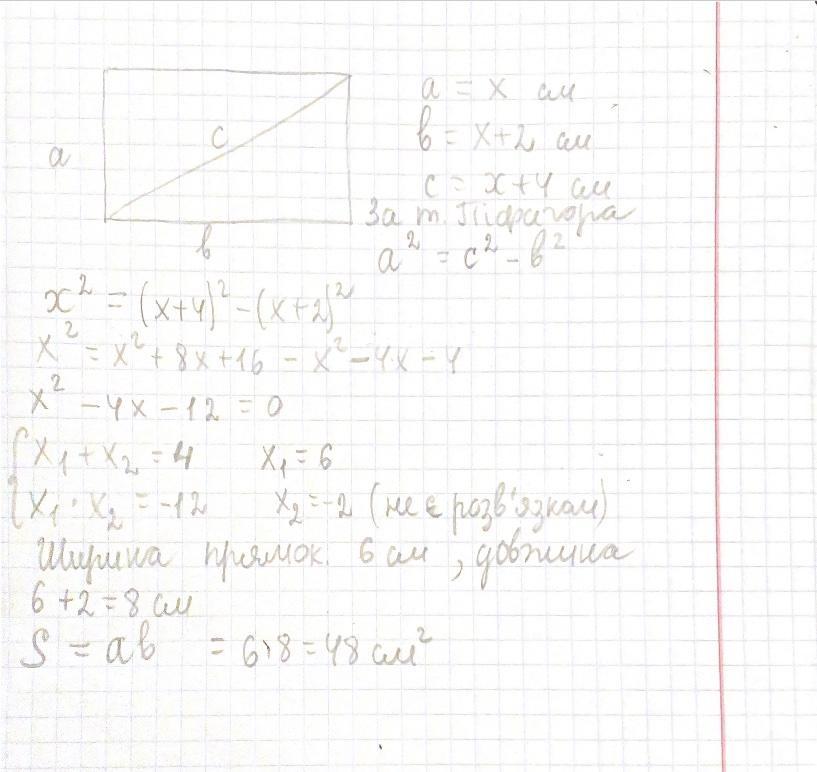 a = x см
в = x+2 см
c = x+4 см
За т. Піфагора
a² = c² - в²
a
c
в
x² = (x+4)² - (x+2)²
x² = x² + 8x + 16 - x² - 4x - 4
x² - 4x - 12 = 0
x₁ + x₂ = 4 x₁ = 6
x₁ · x₂ = -12 x₂ = -2 (не є розв'язком)
Ширина прямок. 6 см, довжина
6 + 2 = 8 см
S = aв = 6·8 = 48 см²